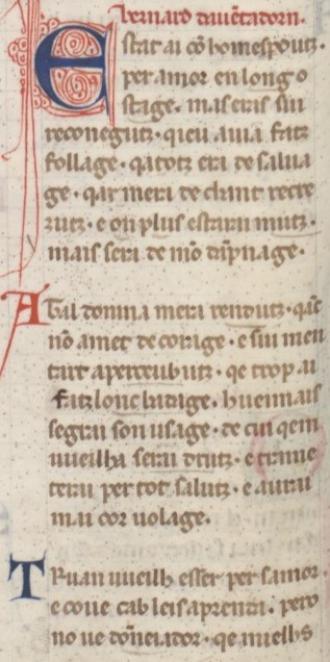 bernard dauētadorn.
Estat ai cō homespdutz.
per amor en long o
stage. mas eras sui
reconegutz. qieu auia faitz
follage. qatotz era de salua
ge. qar mera de chant recre
zutz. e on plus estarai mutz.
mais fera de mō dāpnage.
A tal domna mera rendutz. qāc
nō amet de corage. e sui men
tart aperceubutz. qe trop ai
faitz lonc badage. hueimais
segrai son usage. de cui qem
uueilha serai drutz. e trame
terai per tot salutz. e aurai
mai cor uolage.
Truan uueilh esser per samor.
e coue cab leis aprenda. pero
no ue dōneiador. qe mielhs